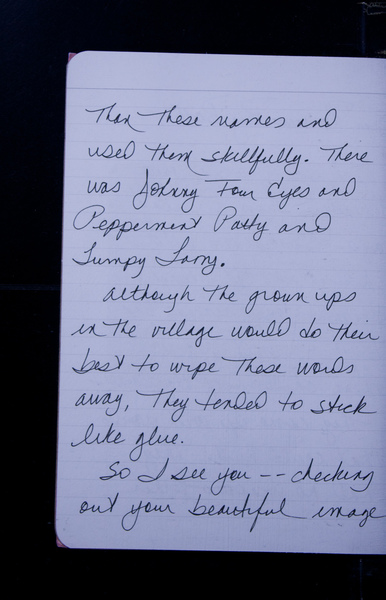 than these names and
used them skillfully. There
was Johnny Four Eyes and
Peppermint Patty and
Lumpy Larry.
Although the grown ups
in the village would do their
best to wipe these words
away, they tended to stick
like glue.
So I see you -- checking
out your beautiful image